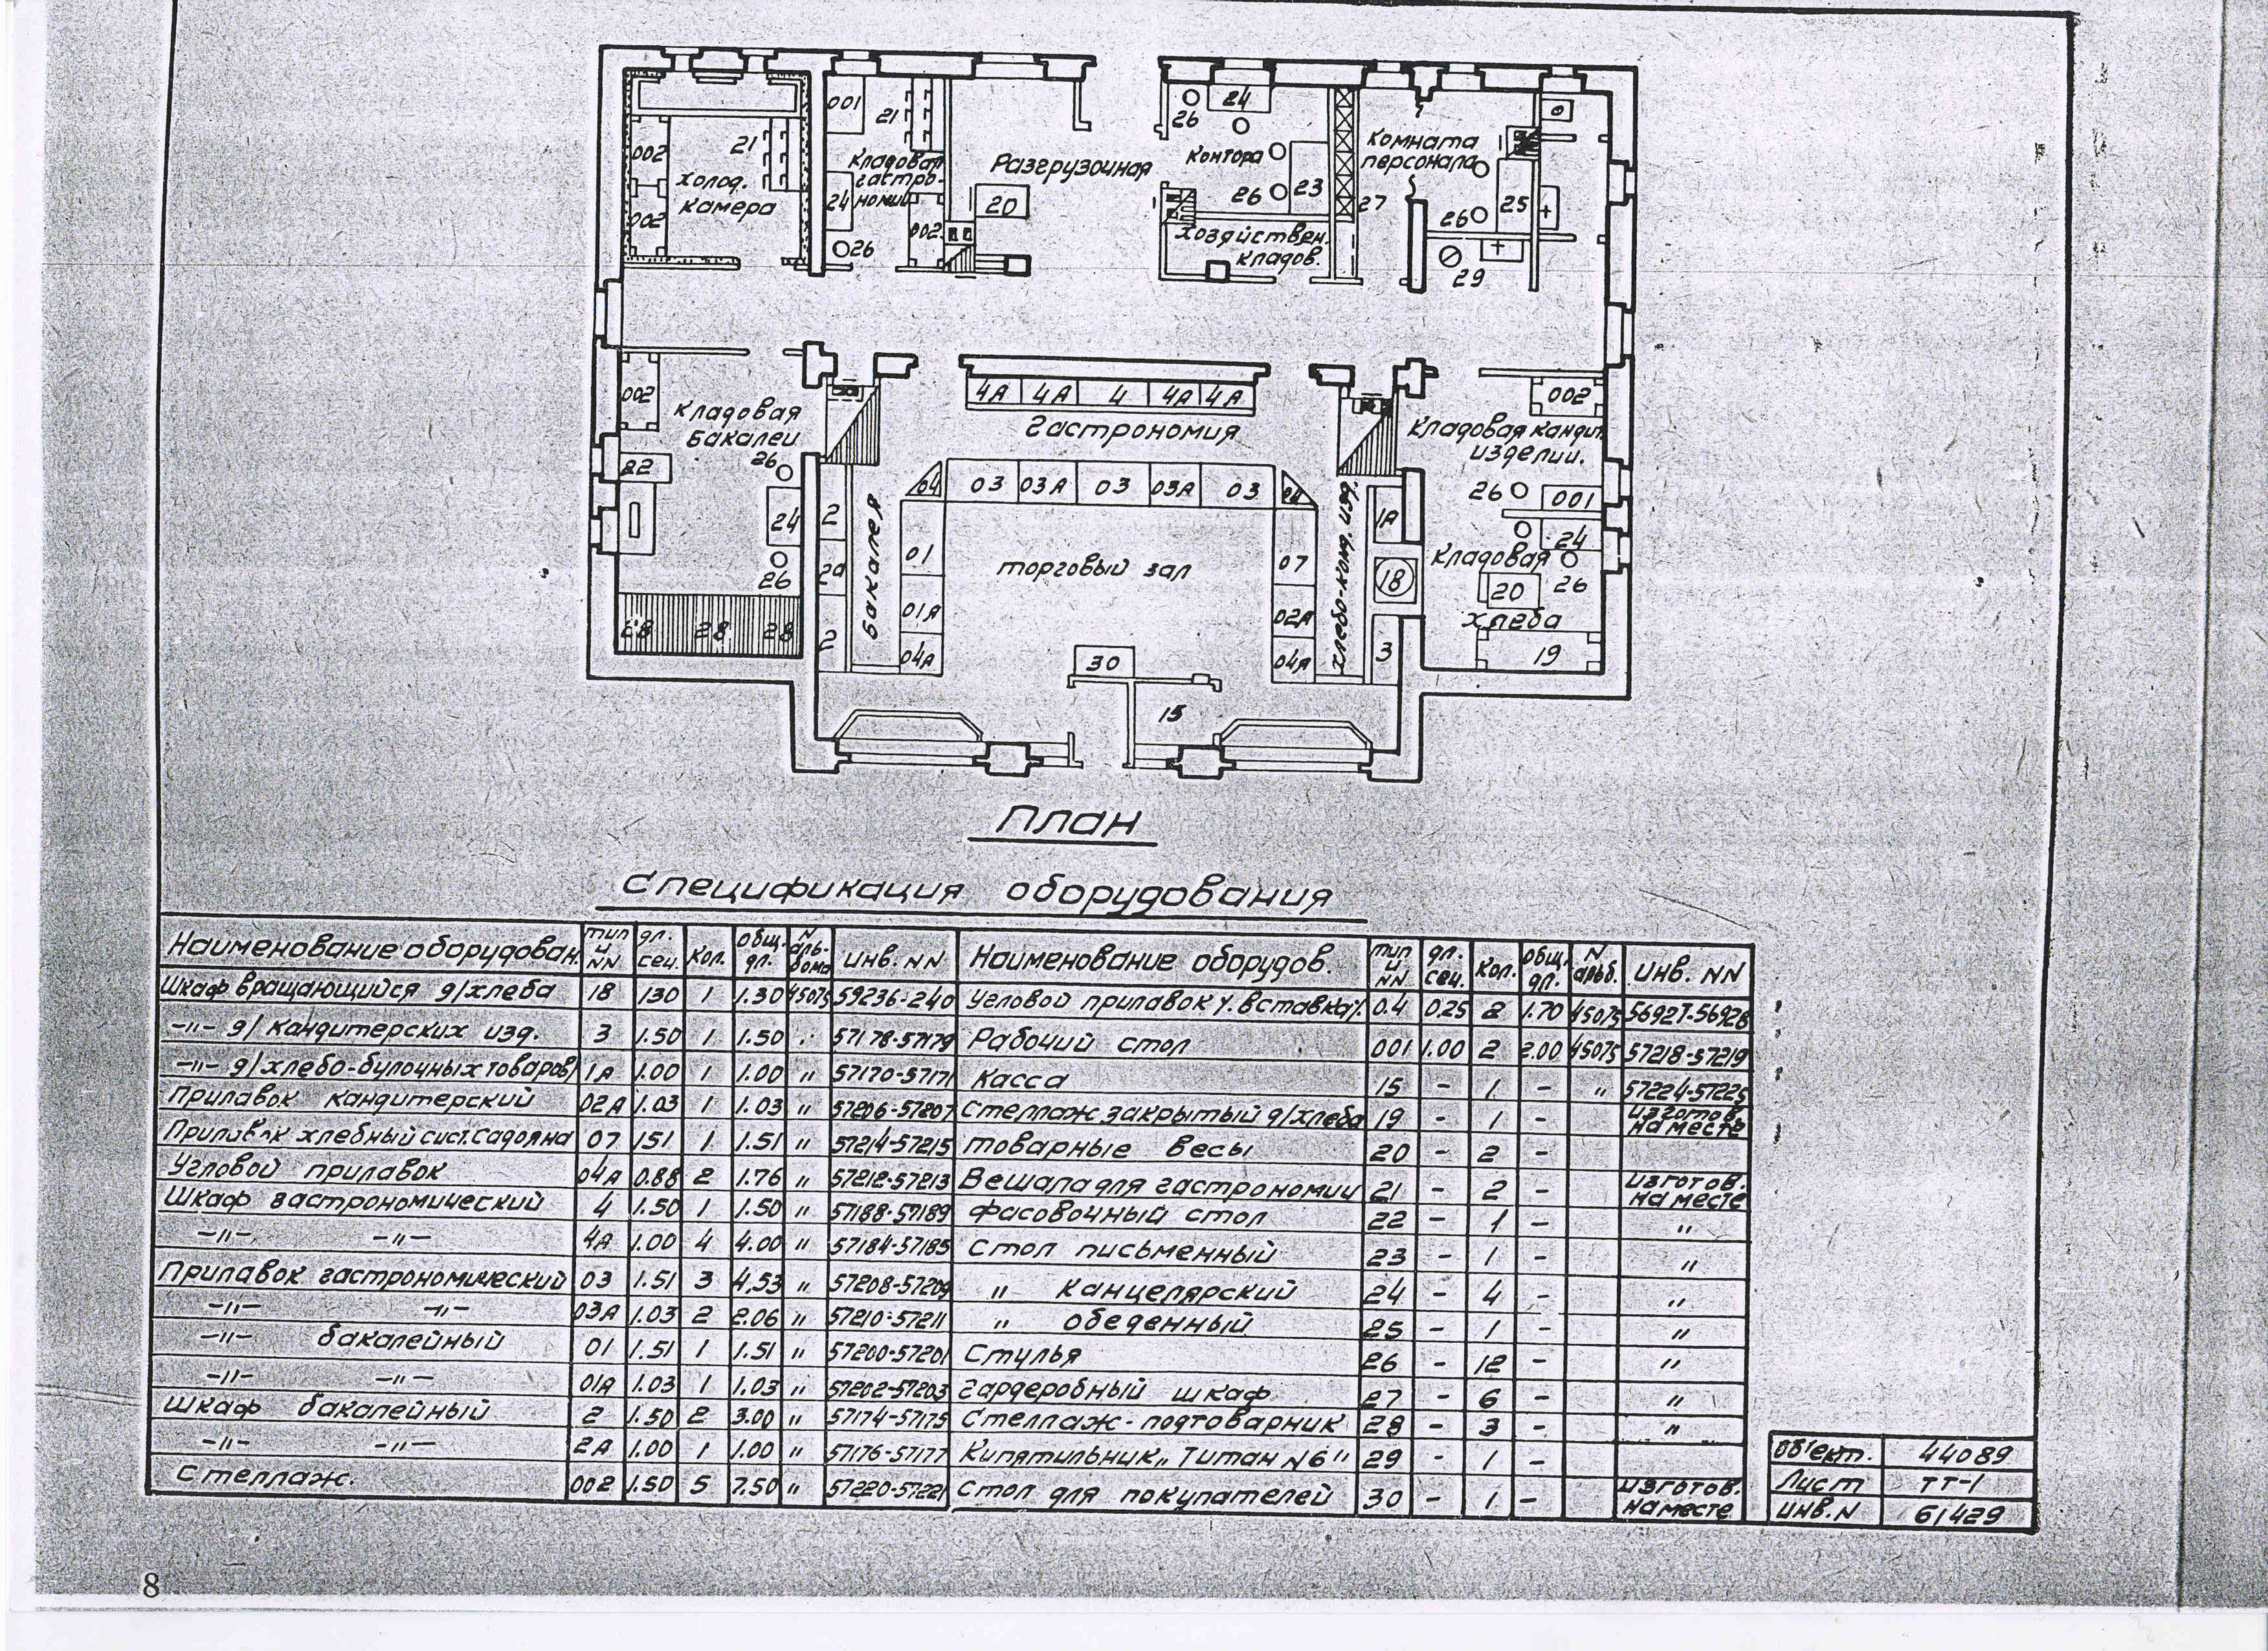 001
21
24
26
002
21
Холод.
камера
002
Кладовая
гастро-
номии
24
26
002
Разгрузочная
20
Контора
26
23
27
Комната
персонала
26
25
Хозяйствен.
кладов.
29
002
Кладовая
бакалеи
26
22
24
26
28 28 28
4А 4А 4 4А 4А
Гастрономия
04 03 03А 03 03А 03 04
2
2а
2
Бакалея
01
01А
04А
Торговый зал
07
02А
04А
Хлебо-конд. изд.
1А
18
3
30
15
002
Кладовая кандит.
изделии.
26 001
24
Кладовая
20 26
хлеба
19
План
Спецификация оборудования
Наименование оборудован. тип и NN дл. сец. кол. общ. дл. N аль-бома инв. NN Наименование оборудов. тип и NN дл. сец. кол. общ. дл. N альб. инв. NN
Шкаф вращающийся д/хлеба 18 130 1 1.30 45075 59236-240 Угловой прилавок /. вставка/. 0.4 0.25 2 1.70 45075 56927-56928
-"- д/кандитерских изд. 3 1.50 1 1.50 " 57178-57179 Рабочий стол 001 1.00 2 2.00 45075 57218-57219
-"- д/хлебо-булочных товаров 1А 1.00 1 1.00 " 57170-57171 Касса 15 - 1 - " 57224-57225
Прилавок кандитерский 02А 1.03 1 1.03 " 57206-57207 Стеллаж закрытый д/хлеба 19 - 1 - изготов. на месте
Прилавок хлебный сист. Садояна 07 151 1 1.51 " 57214-57215 товарные весы 20 - 2 -
Угловой прилавок 04А 0.88 2 1.76 " 57212-57213 Вешала для гастрономии 21 - 2 - изготов. на месте
Шкаф гастрономический 4 1.50 1 1.50 " 57188-57189 Фасовочный стол 22 - 1 - "
-"- -"- 4А 1.00 4 4.00 " 57184-57185 Стол письменный 23 - 1 - "
Прилавок гастрономический 03 1.51 3 4.53 " 57208-57209 " Канцелярский 24 - 4 - "
-"- -"- 03А 1.03 2 2.06 " 57210-57211 " обеденный 25 - 1 - "
-"- бакалейный 01 1.51 1 1.51 " 57200-57201 Стулья 26 - 12 - "
-"- -"- 01А 1.03 1 1.03 " 57202-57203 Гардеробный шкаф 27 - 6 - "
Шкаф бакалейный 2 1.50 2 3.00 " 57174-57175 Стеллаж-подтоварник 28 - 3 - "
-"- -"- 2А 1.00 1 1.00 " 57176-57177 Кипятильник „Титан N6" 29 - 1 -
Стеллаж. 002 1.50 5 7.50 " 57220-57221 Стол для покупателей 30 - 1 - изготов. на месте
Об'ект. 44089
Лист ТТ-1
инв. N 61429
8